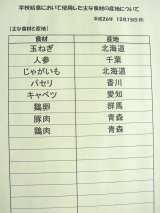 学校給食において使用した主な食材の産地について
平成26年12月19日(金)
(主な食材と産地)
食材 産地
玉ねぎ 北海道
人参 千葉
じゃがいも 北海道
パセリ 香川
キャベツ 愛知
鶏卵 群馬
豚肉 青森
鶏肉 青森